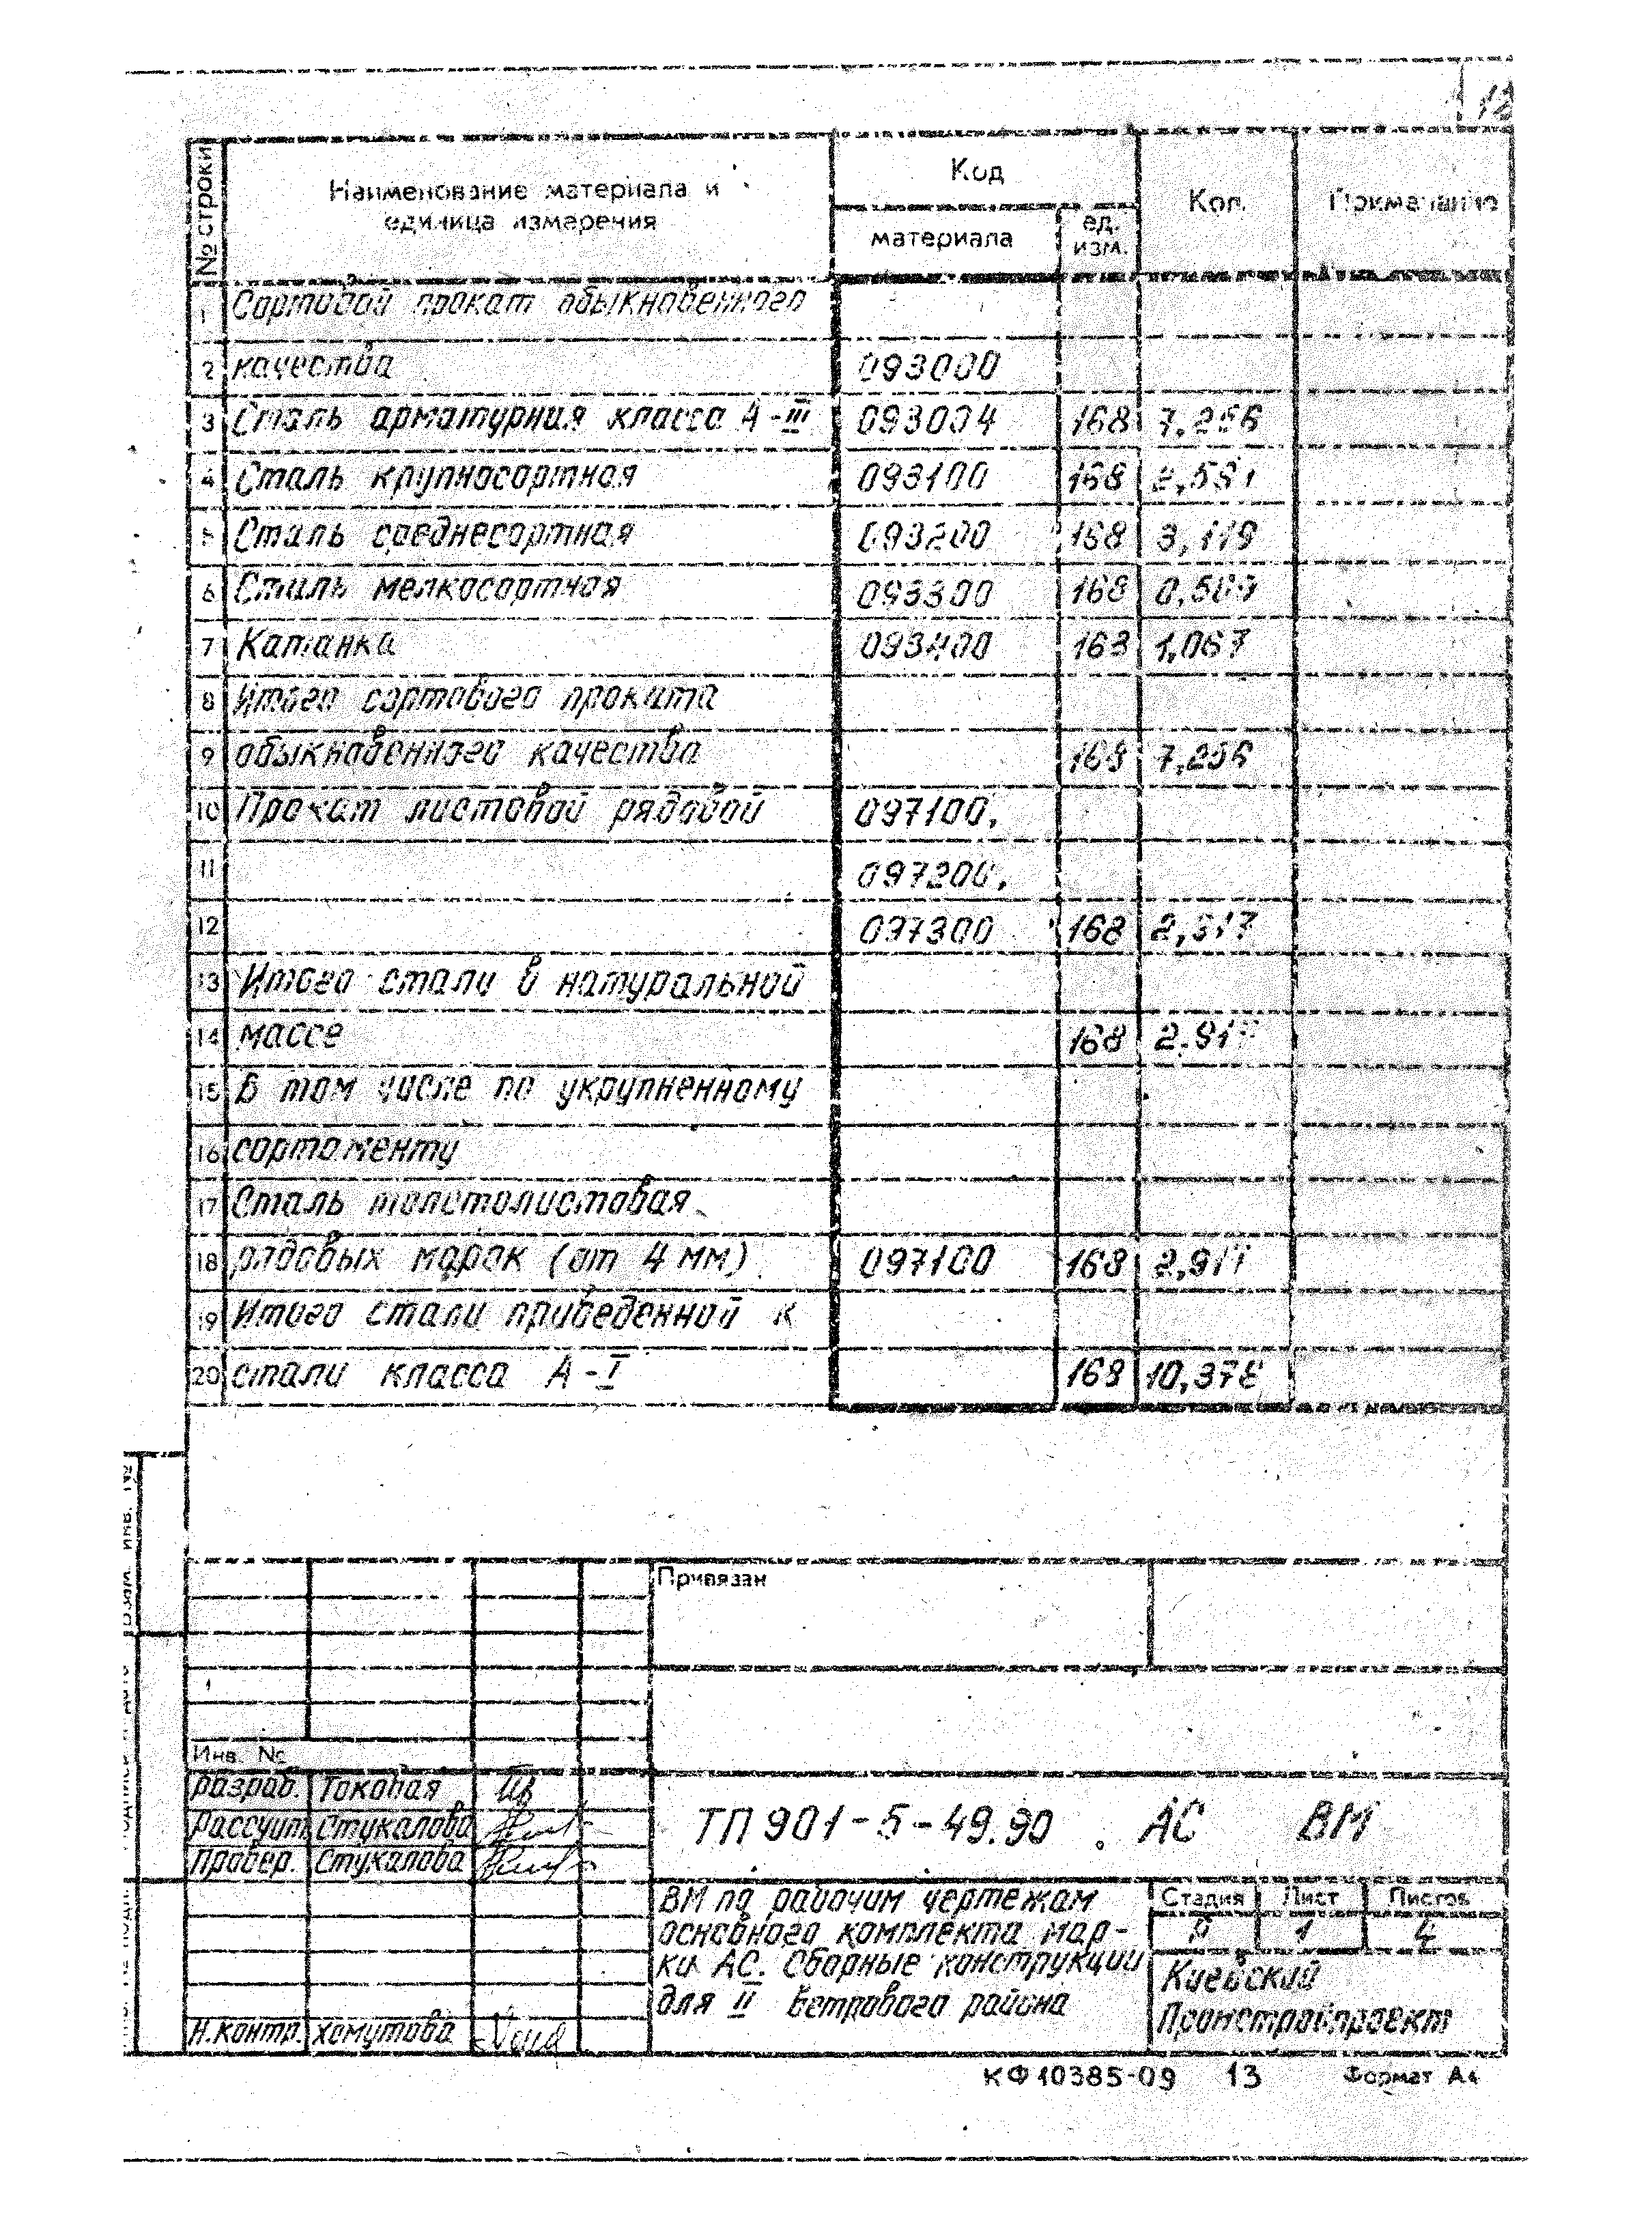 12
№ строки Наименование материала и единица измерения Код Кол. Примечание
материала ед. изм.
1 Сортовой прокат обыкновенного
2 качества 093000
3 Сталь арматурная класса А-III 093004 168
4 Сталь крупносортная 093100 168
5 Сталь среднесортная 093200 168 3,119
6 Сталь мелкосортная 093300 168
7 Катанка 093400 168 1,067
8 Итого сортового проката
9 обыкновенного качества 168
10 Прокат листовой рядовой 097100,
11 097200,
12 097300 168
13 Итого стали в натуральной
14 массе 168
15 В том числе по укрупненному
16 сортаменту
17 Сталь толстолистовая
18 рядовых марок (от 4 мм) 097100 168
19 Итого стали приведенной к
20 стали класса А-I 168 10,378
Взам. инв.
Привязан
Инв. №
Разраб. Токовая
Рассчит. Стукалова
Провер. Стукалова
ТП 901-5-49.90. АС ВМ
ВМ по рабочим чертежам
основного комплекта мар-
ки АС. Сборные конструкции
для II ветрового района
Стадия Лист Листов
Р 1 4
Киевский
Промстройпроект
Н.контр. Хомутова
КФ 10385-09 13 Формат А4